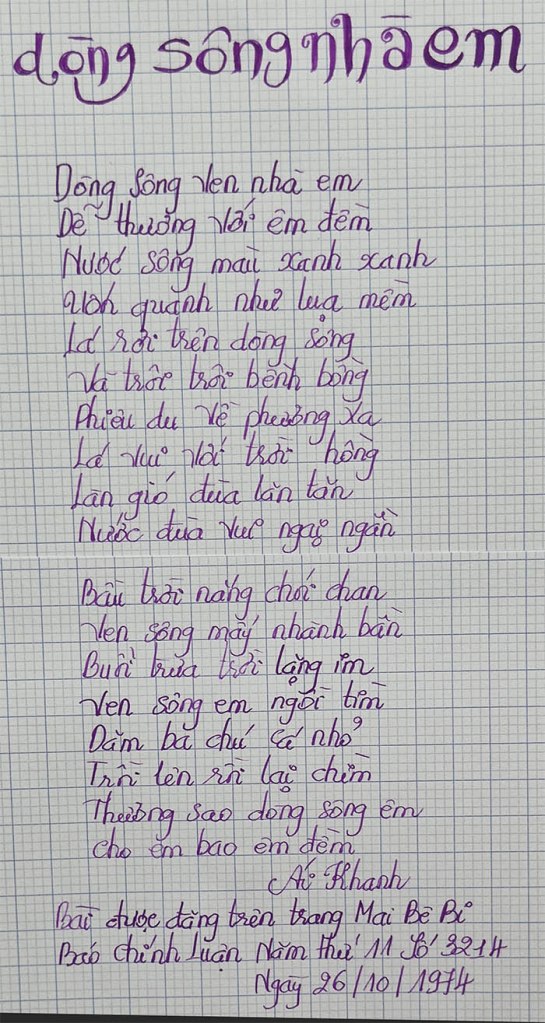 dòng sông nhà em
Dòng sông ven nhà em
Dễ thương với êm đềm
Nước sông màu xanh xanh
Uốn quanh như lụa mềm
Lá rơi trên dòng sông
Và trôi trôi bềnh bồng
Phiêu du về phương xa
Lá vui với trời hồng
Làn gió đưa lăn tăn
Nước đùa vui ngại ngần
Bầu trời nắng chói chan
Ven sông mấy nhành bần
Buổi trưa trời lặng im
Ven sông em ngồi tìm
Dăm ba chú cá nhỏ
Trồi lên rồi lại chìm
Thương sao dòng sông êm
Cho em bao êm đềm
Ái Khanh
Bài được đăng trên trang Mai Bê Bi
Báo Chính Luận Năm thứ 11 Số 3214
Ngày 26/10/1974